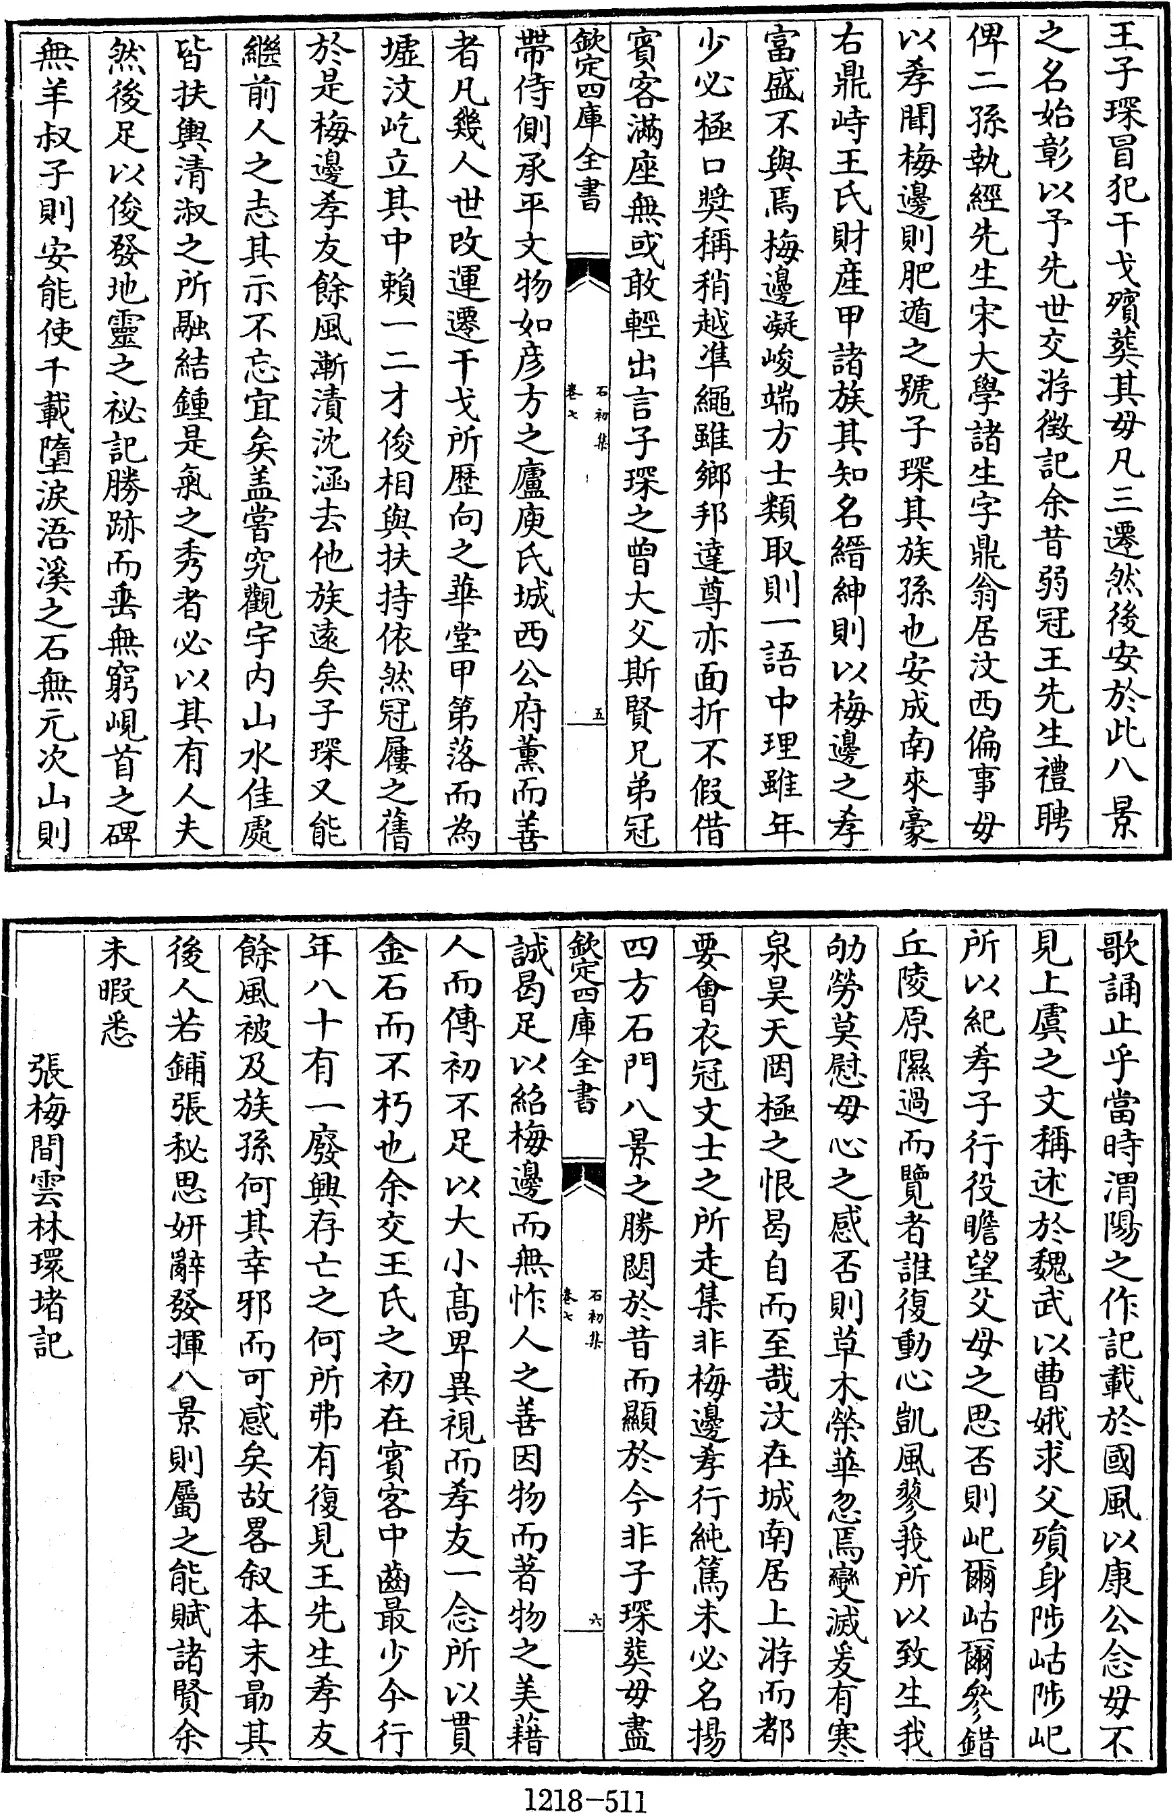 王子琛冒犯干戈殯葬其母凡三遷然後安於此八景
之名始彰以予先世交游徵記余昔弱冠王先生禮聘
俾二孫執經先生宋大學諸生字鼎翁居汶西偏事母
以孝聞梅邊則肥遁之號子琛其族孫也安成南來豪
右鼎峙王氏財產甲諸族其知名縉紳則以梅邊之孝
富盛不與焉梅邊凝峻端方士類取則一語中理雖年
少必極口奬稱稍越準繩雖鄉邦達尊亦面折不假借
賓客滿座無或敢輕出言子琛之曾大父斯賢兄弟冠
欽定四庫全書
石初集
卷七
五
帶侍側承平文物如彦方之廬庾氏城西公府薰而善
者凡幾人世改運遷干戈所歴向之華堂甲第落而為
墟汶屹立其中賴一二才俊相與扶持依然冠屨之舊
於是梅邊孝友餘風漸漬沈涵去他族遠矣子琛又能
繼前人之志其示不忘宜矣盖嘗究觀宇内山水佳處
皆扶輿清淑之所融結鍾是氣之秀者必以其有人夫
然後足以俊發地靈之祕記勝跡而垂無窮峴首之碑
無羊叔子則安能使千載墮淚浯溪之石無元次山則
歌誦止乎當時渭陽之作記載於國風以康公念母不
見上虞之文稱述於魏武以曹娥求父殞身陟岵陟屺
所以紀孝子行役瞻望父母之思否則屺爾岵爾參錯
丘陵原隰過而覽者誰復動心凱風蓼莪所以致生我
劬勞莫慰母心之感否則草木榮華忽焉變滅爰有寒
泉昊天罔極之恨曷自而至哉汶在城南居上游而都
要會衣冠文士之所走集非梅邊孝行純篤未必名揚
四方石門八景之勝閟於昔而顯於今非子琛葬母盡
欽定四庫全書
石初集
卷七
六
誠曷足以紹梅邊而無怍人之善因物而著物之美藉
人而傳初不足以大小高卑異視而孝友一念所以貫
金石而不朽也余交王氏之初在賓客中齒最少今行
年八十有一廢興存亡之何所弗有復見王先生孝友
餘風被及族孫何其幸邪而可感矣故畧叙本末勗其
後人若鋪張秘思妍辭發揮八景則屬之能賦諸賢余
未暇悉
張梅間雲林環堵記
1218-511